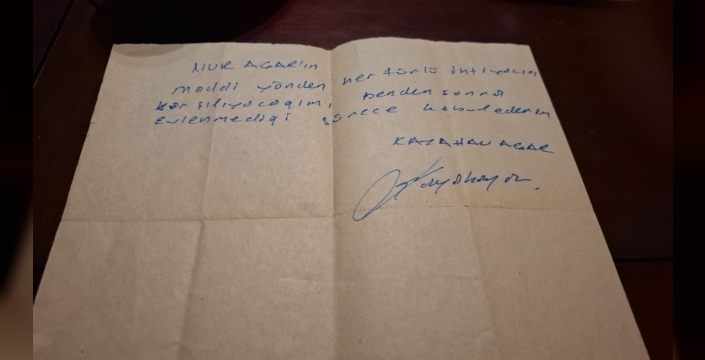 NUR AGAR'ın
maddi yönden her türlü ihtiyacını
karşılıyacağımı, benden sonra
evlenmediği sürece kabul ederim
KAYAHAN AÇAR